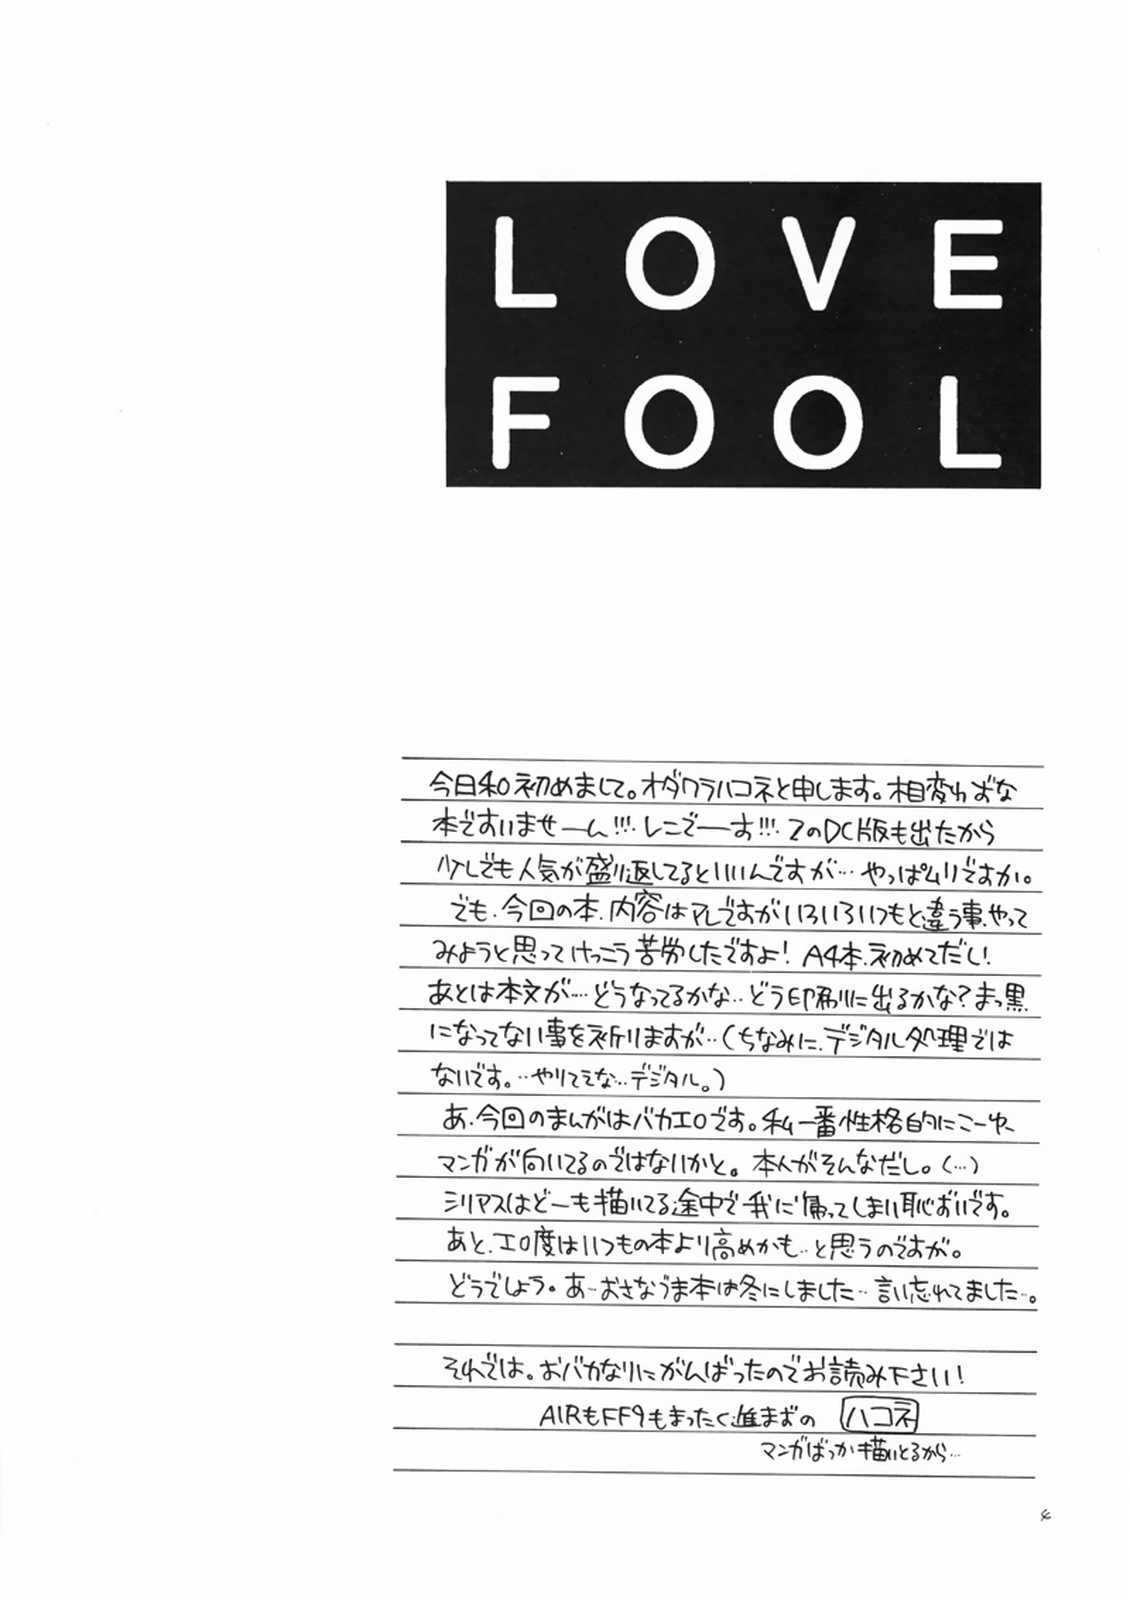 LOVE
FOOL
今日和初めまして。オダワラハコネと申します。相変わらずな
本ですいませーん!!!・しこでーす!!!・2のDC版も出たから
少しでも人気が盛り返してるといいんですが…やっぱムリですか。
でも、今回の本、内容はアレですがいろいろいつもと違う事、やって
みようと思ってけっこう苦労したですよ! A4本、初めてだし!
あとは本文が…どうなってるかな‥どう印刷に出るかな?まっ黒
になってない事を祈りますが‥(ちなみに、デジタル処理では
ないです。‥やりてえな…デジタル。)
あ、今回のまんがはバカエロです。私一番性格的にこーゆー
マンガが向いてるのではないかと。本人がそんなだし。(…)
シリアスはどーも描いてる途中で我に帰ってしまい恥ずいです。
あと、エロ度はいつもの本より高めかも‥と思うのですが。
どうでしょう。あ‥おさなづま本は冬にしました‥言い忘れてました‥。
それでは。おバカなりにがんばったのでお読み下さい!
AIRもFF9もまったく進まずの ハコネ
マンガばっか描いとるから…
4